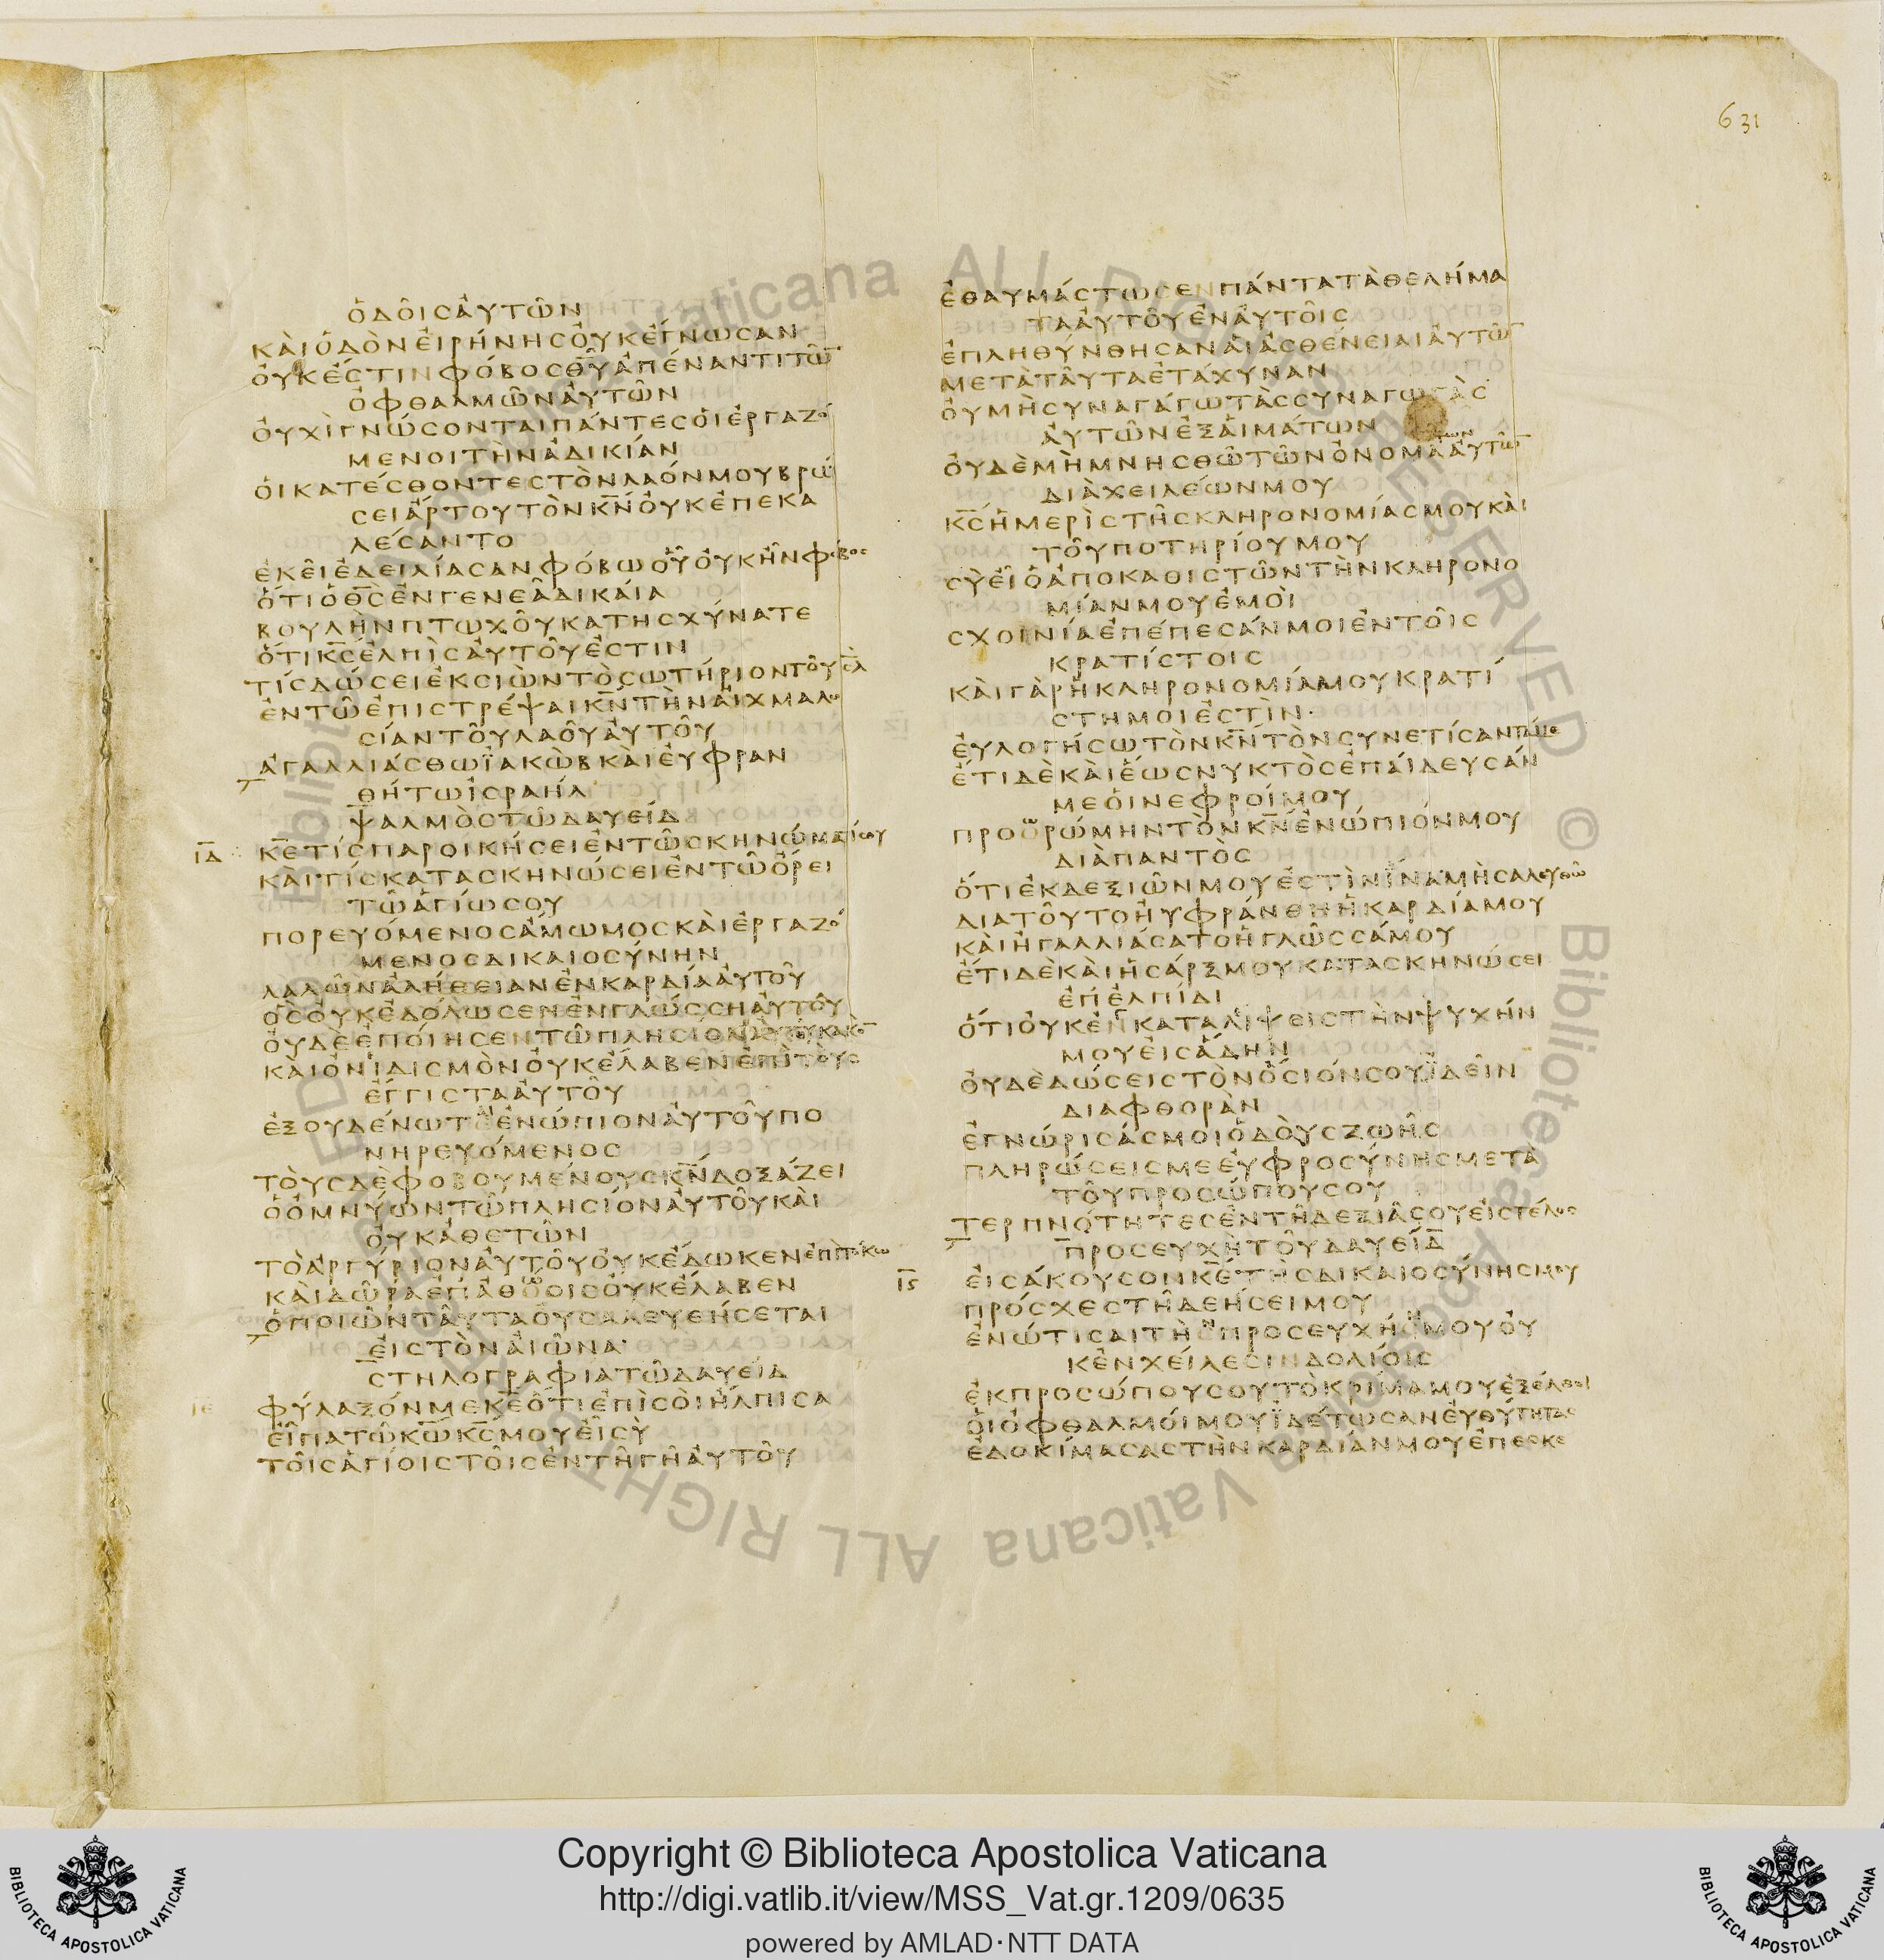 631
ὁδοῖσἀυτῶν
κὰιὁδὸνἐιρήνησὀυκἔγνωσαν
ὀυκἔστινφόβοσθ̅υ̅ἀπέναντιτῶ̅
ὀφθαλμῶνἀυτῶν
ὀυχὶγνώσονταιπάντεσὁιἐργαζό
μενοιτὴνἀδικίαν
ὁικατέσθοντεστὸνλαόνμουβρώ
σειἄρτουτὸνκ̅ν̅ὀυκἐπεκα
λέσαντο
ἐκεῖἐδειλίασανφόβωοὗὀυκἦνφόβοσ
ὅτιὁθ̅σ̅ἐνγενεᾶδικάια
βουλὴνπτωχοῦκατησχύνατε
ὅτικ̅σ̅ἐλπὶσἀυτοῦἐστιν
τίσδώσειἐκσιὼντὸσωτήριοντοῦι̅σ̅λ̅
ἐντῶἐπιστρέψαικ̅ν̅τὴναἰχμαλω
σίαντοῦλαοῦἀυτοῦ
ἀγαλλιάσθωϊακὼβκὰιἐυφραν
θήτωἰσραήλ
ψαλμὸστῶδαυείδ
ι̅δ̅ κ̅ε̅τίσπαροικήσειἐντῶσκηνώματίσου
κὰιτίσκατασκηνώσειἐντῶὄρει
τῶἁγίωσου
πορευόμενοσἄμωμοσκὰιἐργαζό
μενοσδικαιοσύνην
λαλῶνἀλήθειανἐνκαρδίαἀυτοῦ
ὃσὀυκἐδόλωσενἐνγλώσσηἀυτοῦ
ὀυδὲἐποίησεντῶπλησίονἀυτοῦκακὸ̅
κὰιὀνιδισμὸνὀυκἔλαβενἐπὶτοὺσ
ἔγγισταἀυτοῦ
ἐξουδένωταιἐνώπιονἀυτοῦπο
νηρευόμενοσ
τοὺσδὲφοβουμένουσκ̅ν̅δοξάζει
ὁὀμνύωντῶπλησίονἀυτοῦκὰι
ὀυκἀθετῶν
τὸἀργύριονἀυτοῦὀυκἔδωκενἐπὶτόκω
κὰιδῶραἐπἀθώοισὀυκἔλαβεν
ὁποιῶνταῦταὀυσαλευθήσεται
ἐιστὸνἀιῶνα
στηλογραφίατῶδαυείδ
ι̅ε̅ φύλαξόνμεκ̅ε̅ὅτιἐπὶσὸιἤλπισα
ἐῖπατῶκ̅ω̅κ̅σ̅μουἐῖσὺ
τοῖσἁγίοιστοῖσἐντῆγῆἀυτοῦ
ἐθαυμάστωσενπάντατὰθελήμα
ταἀυτοῦἐνἀυτοῖσ
ἐπληθύνθησανἁιἀσθένειαιἀυτῶ̅
μετὰταῦταἐτάχυναν
ὀυμὴσυναγάγωτὰσσυναγωγὰσ
ἀυτῶνἐξἁιμάτων
ὀυδὲμὴμνησθῶτῶνὀνομάτωνἀυτῶ̅
διὰχειλέωνμου
κ̅σ̅ἡμερὶστῆσκληρονομίασμουκὰι
τοῦποτηρίουμου
σὺἐῖὁἀποκαθιστῶντὴνκληρονο
μίανμουἐμόι
σχοινίαἐπέπεσάνμοιἐντοῖσ
κρατίστοισ
κὰιγὰρἡκληρονομίαμουκρατί
στημοιἐστὶν
ἐυλογήσωτὸνκ̅ν̅τὸνσυνετίσαντάμε
ἔτιδὲκὰιἕωσνυκτὸσἐπάιδευσάν
μεὁινεφρόιμου
προωρώμηντὸνκ̅ν̅ἐνώπιόνμου
διὰπαντὸσ
ὅτιἐκδεξιῶνμουἐστὶνἵναμὴσαλευθῶ
διατοῦτοηὐφράνθηἡκαρδίαμου
κὰιἠγαλλιάσατοἡγλῶσσάμου
ἔτιδὲκὰιἡσάρξμουκατασκηνώσει
ἐπἐλπίδι
ὅτιὀυκἐνκαταλίψειστὴνψυχήν
μουἐισἅδην
ὀυδὲδώσειστὸνὅσιόνσουϊδεῖν
διαφθορὰν
ἐγνώρισάσμοιὁδοὺσζωῆσ
πληρώσεισμεἐυφροσύνησμετὰ
τοῦπροσώπουσου
τερπνότητεσἐντῆδεξιᾶσουἐιστέλοσ
προσευχὴτοῦδαυείδ
ι̅ϛ̅ ἐισάκουσονκ̅ε̅τῆσδικαιοσύνησμου
πρόσχεστῆδεήσειμου
ἐνώτισαιτὴνπροσευχήνμουὀυ
κἐνχείλεσινδολίοισ
ἐκπροσώπουσουτὸκρίμαμουἐξέλθοι
ὁιὀφθαλμόιμουϊδέτωσανἐυθύτητασ
ἐδοκίμασαστὴνκαρδίανμουἐπεσκε
Copyright © Biblioteca Apostolica Vaticana
http://digi.vatlib.it/view/MSS_Vat.gr.1209/0635
powered by AMLAD·NTT DATA